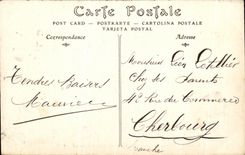 Carte Postale
POST CARD — POSTKARTE — CARTOLINA POSTALE
TARJETA POSTAL
Correspondance
Adresse
Tendres Baisers
Maurice
Monsieur Léon
Chez ses Parents
Rue du Commerce
Cherbourg
Manche